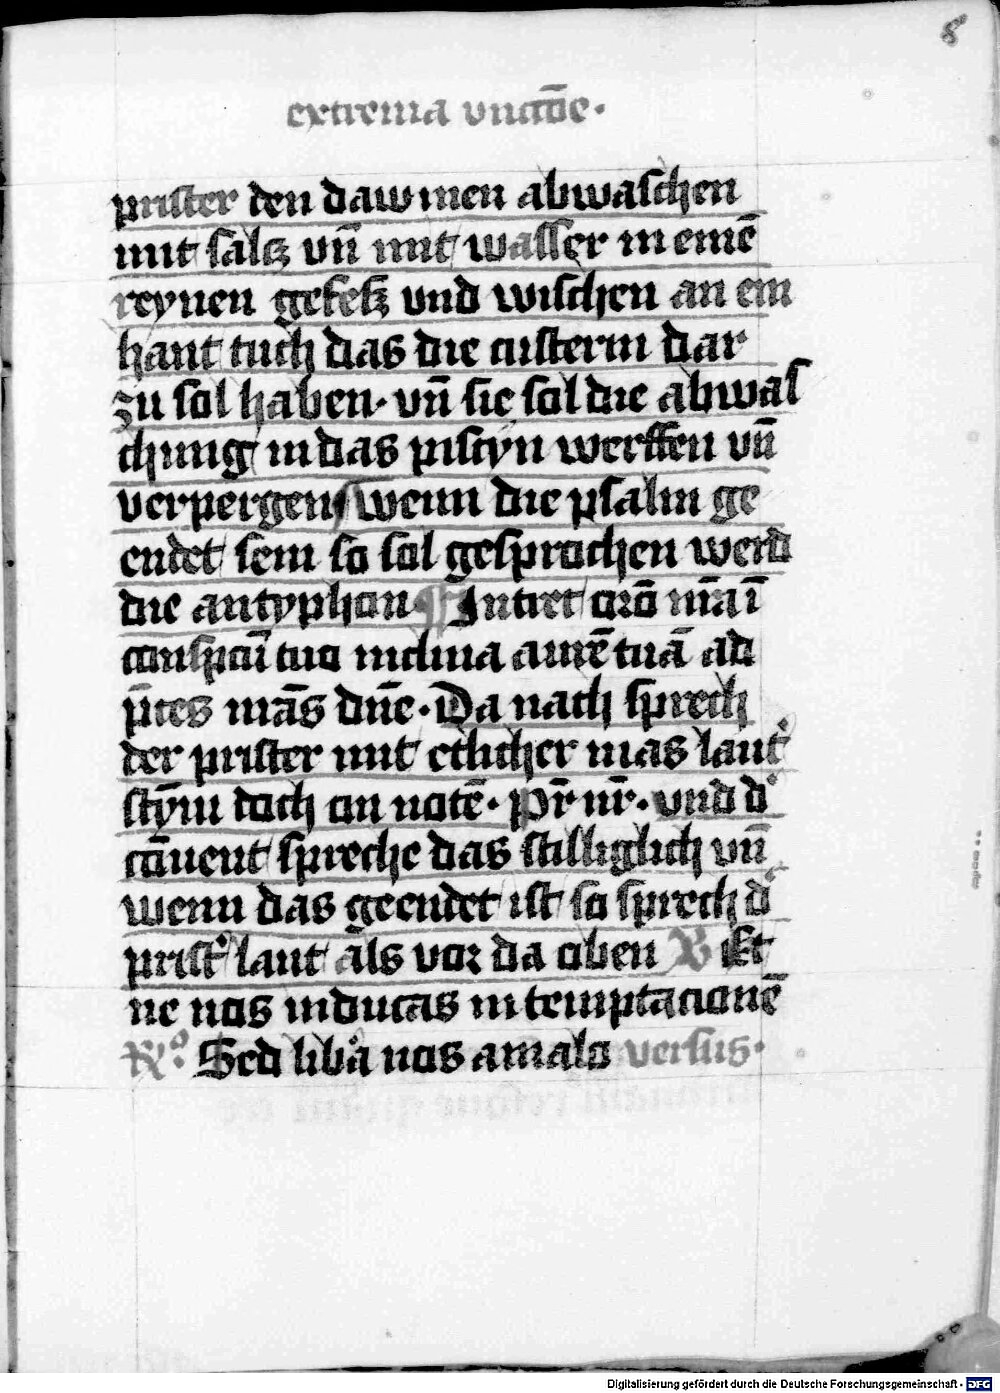 8
extrema vnctōe.
prister den dawmen abwaschen
mit salcz vnd̄ mit wasser in eynē
reynen gefesz vnd wischen an ein
hant tuch das die custerin dar
zu sol haben. vn̄ sie sol die abwas
chung in das piscyn werffen vn̄
verpergen wenn die psalm ge
endet sein so sol gesprochen werd
die antyphon ¶ Intret orō mr̄a ī
conspcū tuo inclina aurē tuā ad
p̄ces nr̄as dn̄e. Da nach sprech
der prister mit etlicher mas laut
stȳm doch on notē. Pr̄ nr̄. vnd d'
cōuent spreche das stilliglich vn̄
wenn das geendet ist so sprech d'
prist' laut als vor da oben V Et
ne nos inducas in temptacionē
R° Sed lib'a nos a malo versus.
Digitalisierung gefördert durch die Deutsche Forschungsgemeinschaft - DFG